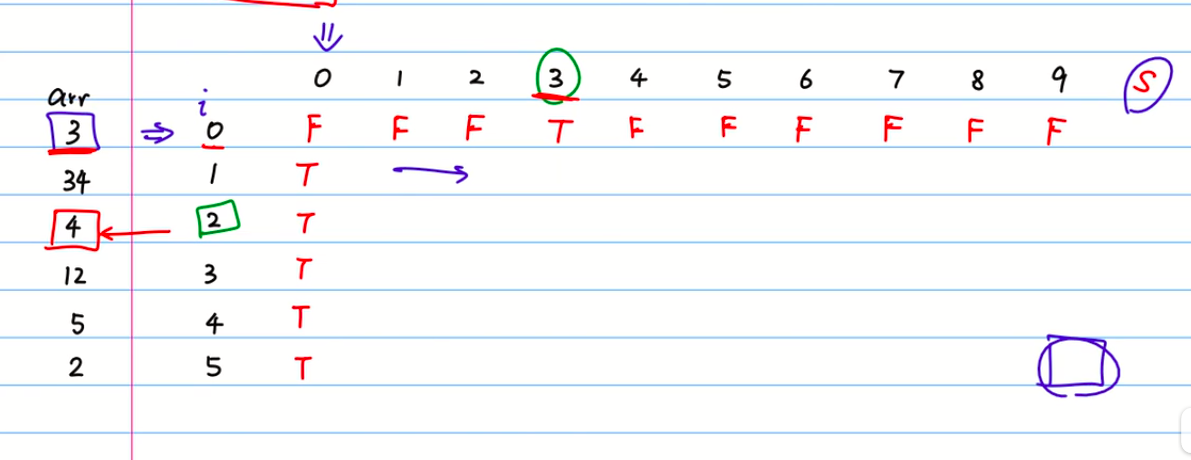 0 1 2 3 4 5 6 7 8 9 S
arr i
3 ⇒ 0 F F F T F F F F F F
34 1 T →
4 ← 2 T
12 3 T
5 4 T
2 5 T